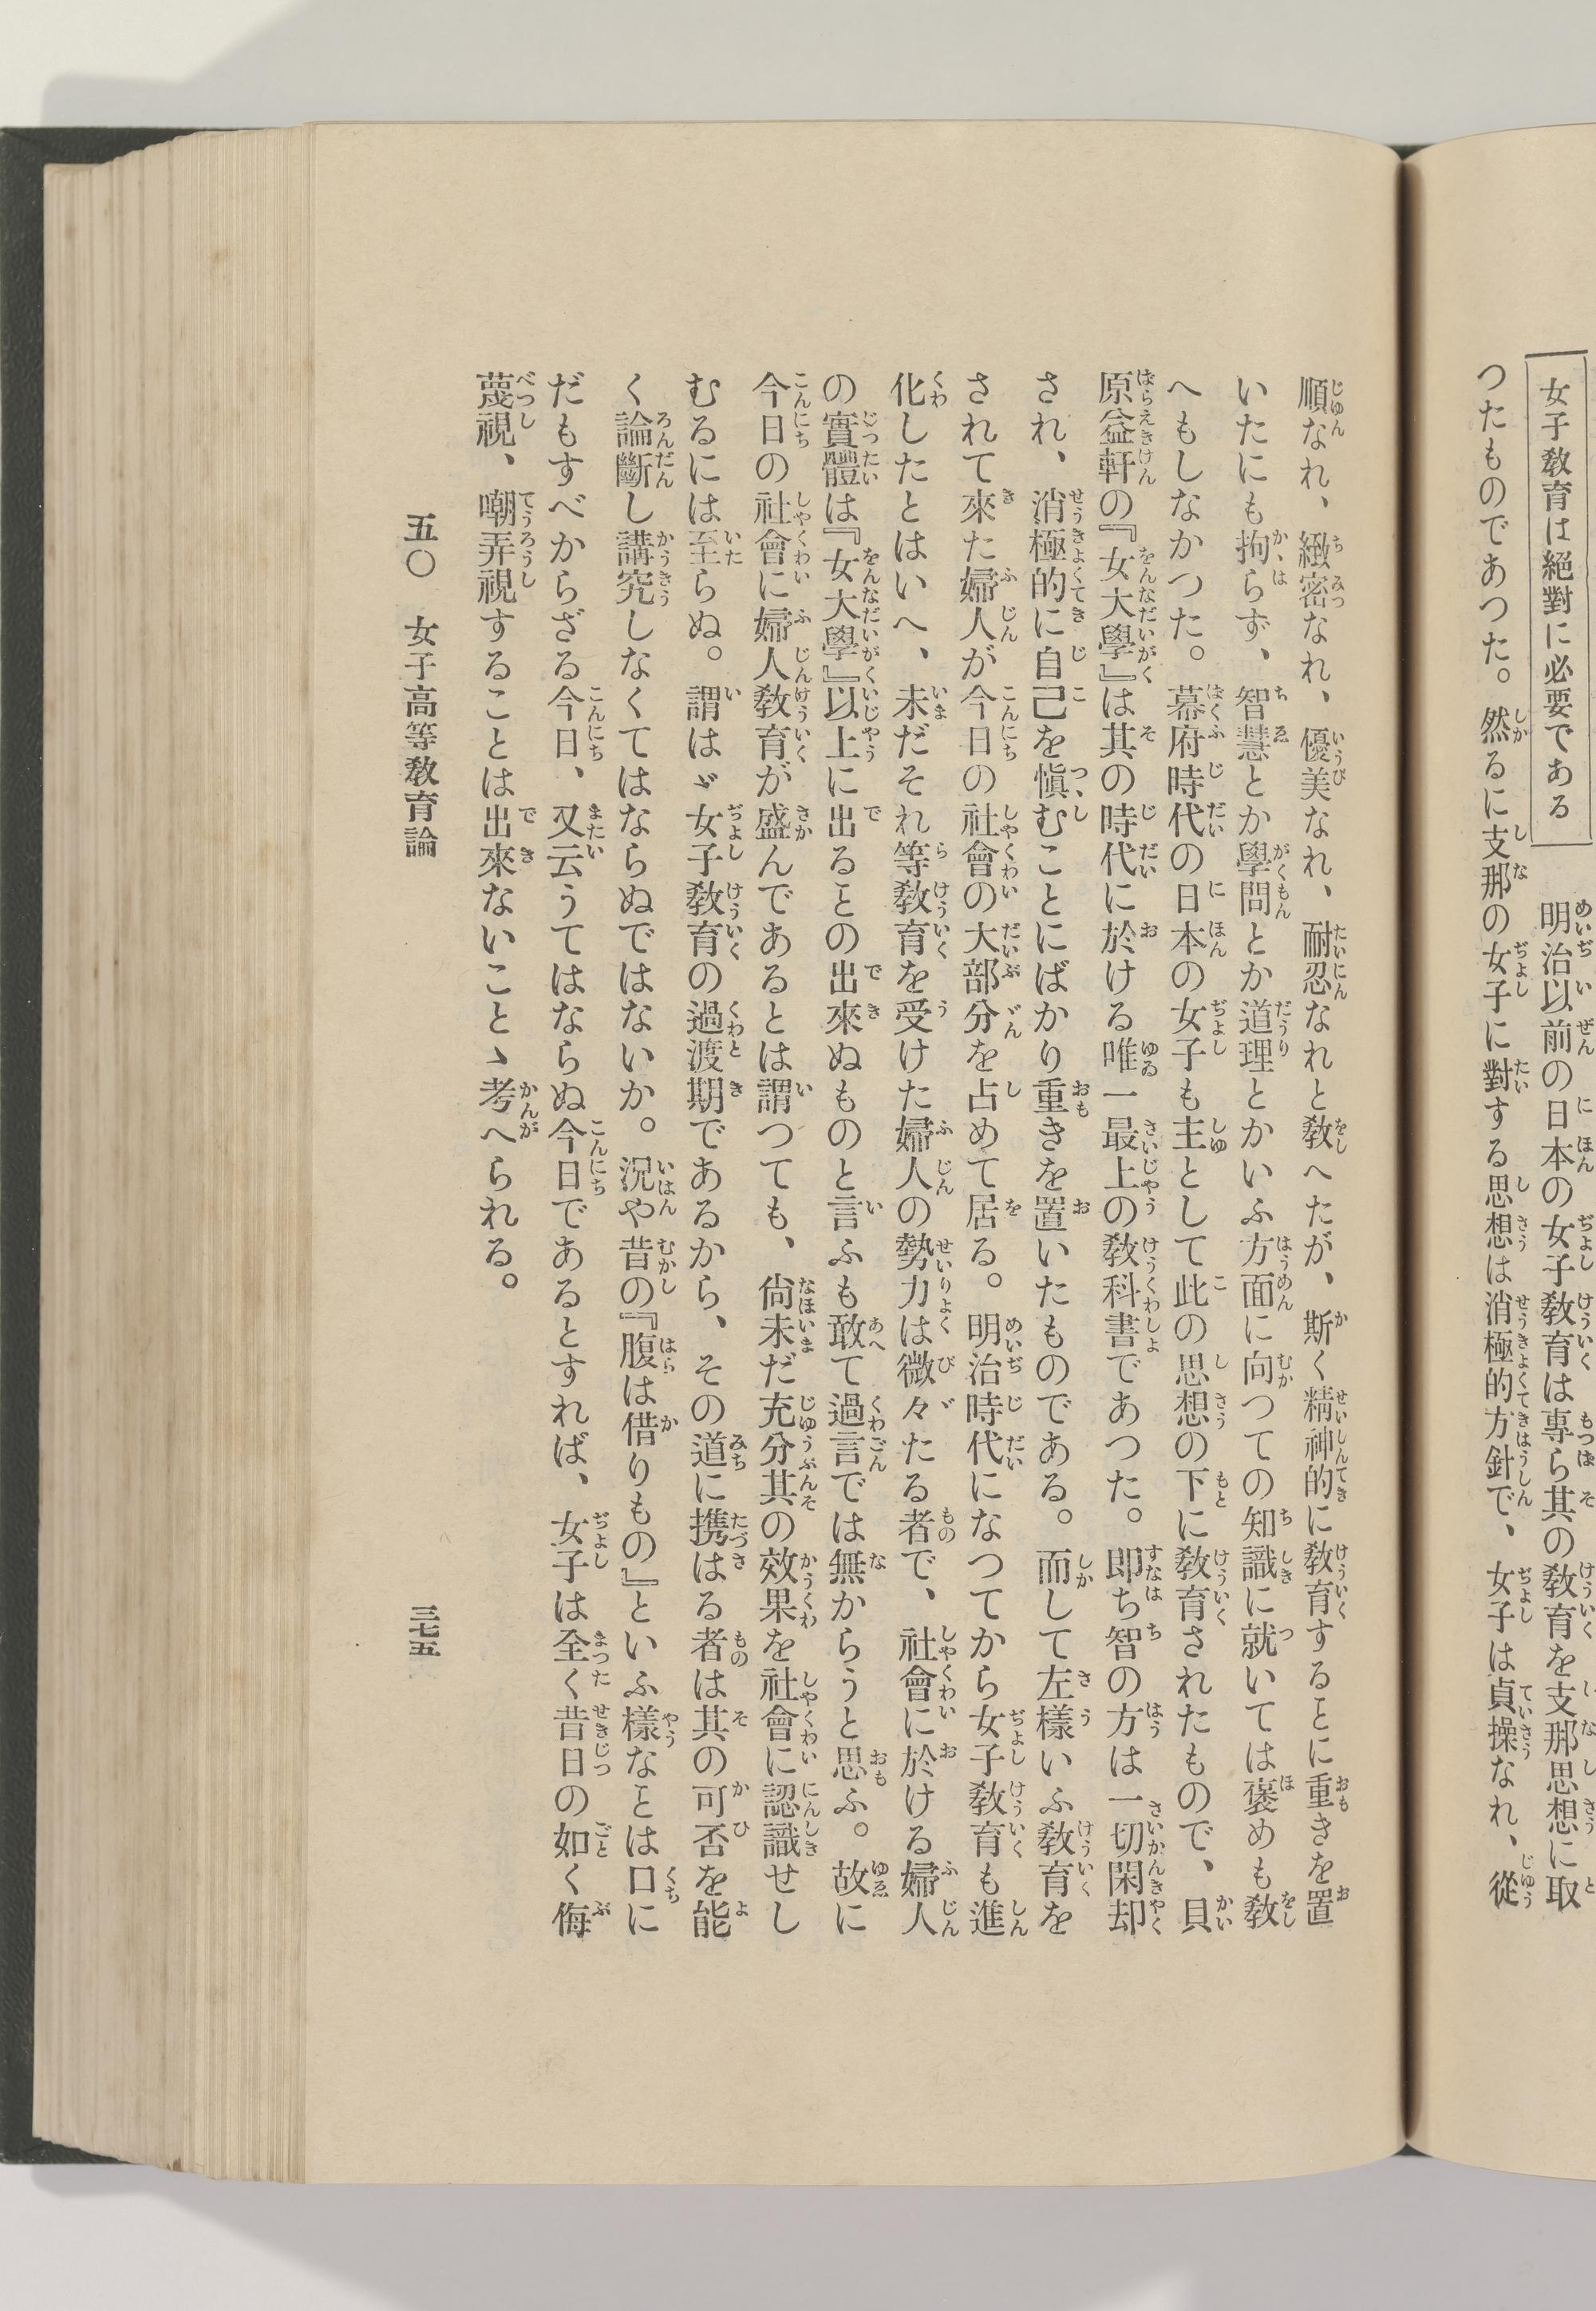 女子教育は絶對に必要である
明治以前の日本の女子敎育は專ら其の敎育を支那思想に取
つたものであつた。然るに支那の女子に對する思想は消極的方針で、女子は貞操なれ、從
順なれ、緻密なれ、優美なれ、耐忍なれと敎へたが、斯く精神的に敎育するとに重きを置
いたにも拘らず、智慧とか學問とか道理とかいふ方面に向つての知識に就いては褒めも敎
へもしなかつた。幕府時代の日本の女子も主として此の思想の下に敎育されたもので、貝
原益軒の『女大學』は其の時代に於ける唯一最上の敎科書であつた。即ち智の方は一切閑却
され、消極的に自己を愼むことにばかり重きを置いたものである。而して左樣いふ敎育を
されて來た婦人が今日の社會の大部分を占めて居る。明治時代になつてから女子敎育も進
化したとはいへ、未だそれ等敎育を受けた婦人の勢力は微々たる者で、社會に於ける婦人
の實體は『女大學』以上に出るとの出來ぬものと言ふも敢て過言では無からうと思ふ。故に
今日の社會に婦人敎育が盛んであるとは謂つても、尙未だ充分其の效果を社會に認識せし
むるには至らぬ。謂はゞ女子敎育の過渡期であるから、その道に携はる者は其の可否を能
く論斷し講究しなくてはならぬではないか。況や昔の『腹は借りもの』といふ樣なとは口に
だもすべからざる今日、又云うてはならぬ今日であるとすれば、女子は全く昔日の如く侮
蔑視、嘲弄視することは出來ないことゝ考へられる。
五〇 女子高等敎育論
三七五